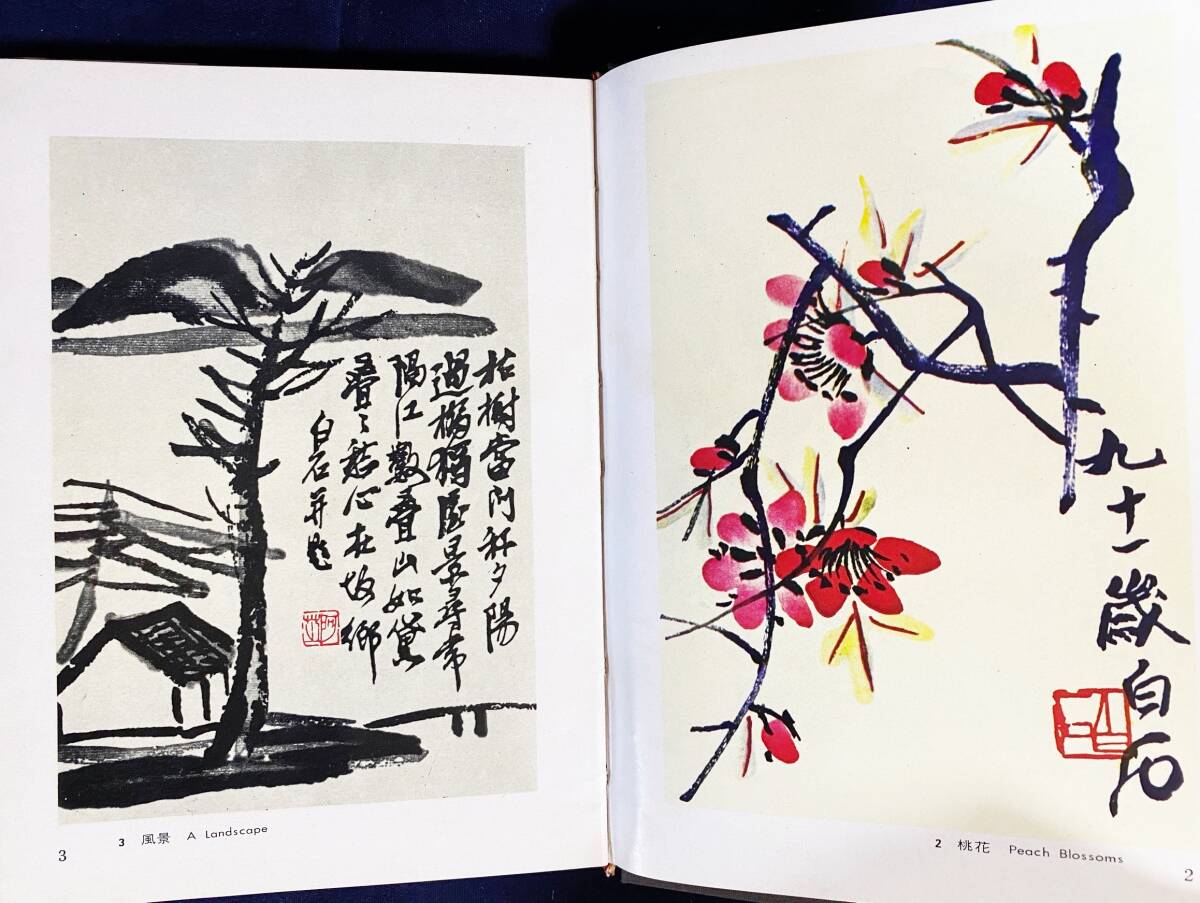 九十一歲白石
2 桃花 Peach Blossoms
2
枯樹當門夕陽
過橋屋景尋常
隔江數疊山如黛
疊〻愁心在故鄉
白石并題
阿芝
3 風景 A Landscape
3